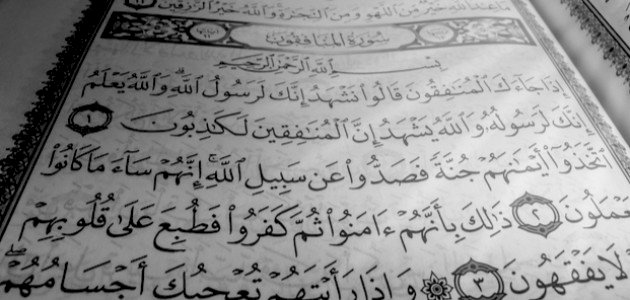 مَا عِندَ ٱللَّهِ خَيۡرٞ مِّنَ ٱللَّهۡوِ وَمِنَ ٱلتِّجَٰرَةِۚ وَٱللَّهُ خَيۡرُ ٱلرَّٰزِقِينَ
سُورَةُ المُنَافِقُون
بِسۡمِ ٱللَّهِ ٱلرَّحۡمَٰنِ ٱلرَّحِيمِ
إِذَا جَآءَكَ ٱلۡمُنَٰفِقُونَ قَالُواْ نَشۡهَدُ إِنَّكَ لَرَسُولُ ٱللَّهِۗ وَٱللَّهُ يَعۡلَمُ
إِنَّكَ لَرَسُولُهُۥ وَٱللَّهُ يَشۡهَدُ إِنَّ ٱلۡمُنَٰفِقِينَ لَكَٰذِبُونَ ١
ٱتَّخَذُوٓاْ أَيۡمَٰنَهُمۡ جُنَّةٗ فَصَدُّواْ عَن سَبِيلِ ٱللَّهِۚ إِنَّهُمۡ سَآءَ مَا كَانُواْ
يَعۡمَلُونَ ٢ ذَٰلِكَ بِأَنَّهُمۡ ءَامَنُواْ ثُمَّ كَفَرُواْ فَطُبِعَ عَلَىٰ قُلُوبِهِمۡ
لَا يَفۡقَهُونَ ٣ ۞ وَإِذَا رَأَيۡتَهُمۡ تُعۡجِبُكَ أَجۡسَامُهُمۡۖ